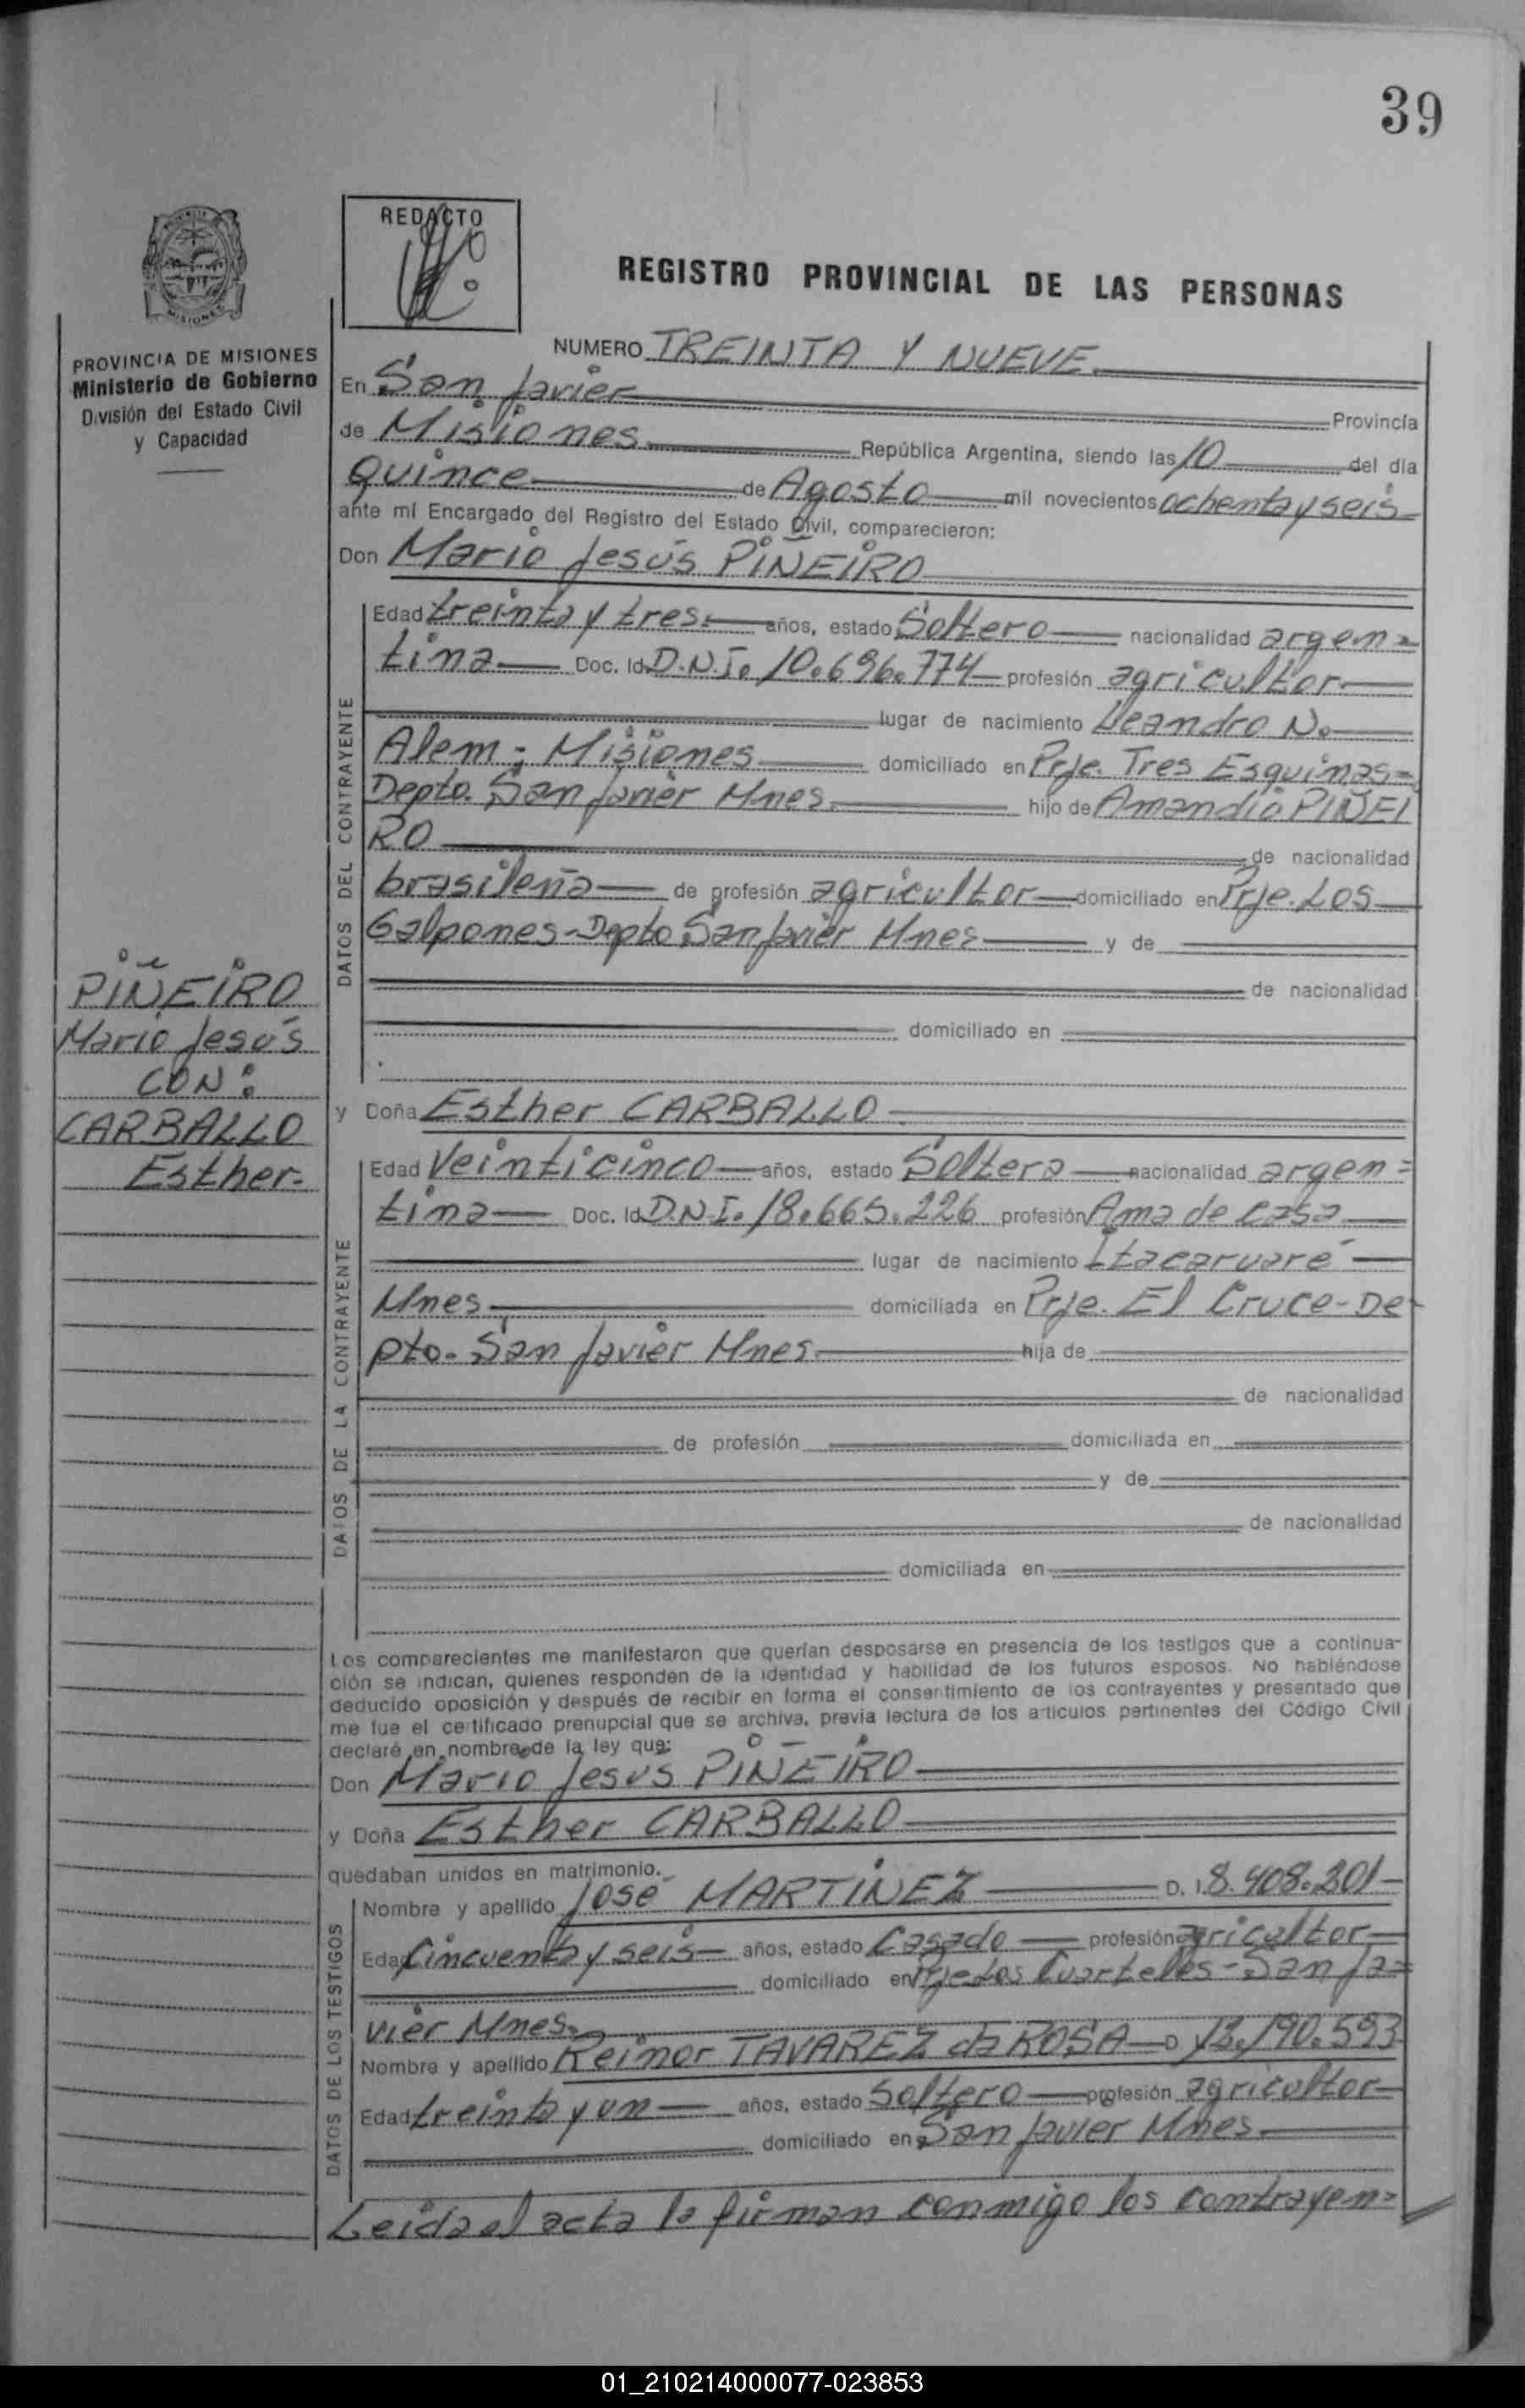 39
REDACTO
REGISTRO PROVINCIAL DE LAS PERSONAS
MISIONES
PROVINCIA DE MISIONES
Ministerio de Gobierno
División del Estado Civil
y Capacidad
NUMERO TREINTA Y NUEVE.
En San Javier Provincia
de Misiones República Argentina, siendo las 10 del día
quince de Agosto mil novecientos ochenta y seis
ante mí Encargado del Registro del Estado Civil, comparecieron:
Don Mario Jesús PIÑEIRO
DATOS DEL CONTRAYENTE
Edad treinta y tres años, estado Soltero nacionalidad argen=
tina Doc. Id. D.N.I. 10.696.774 profesión agricultor.
lugar de nacimiento Leandro N.
Alem - Misiones domiciliado en Prje. Tres Esquinas-
Depto. San Javier Mnes. hijo de Amandio PIÑEI
RO de nacionalidad
brasileña de profesión agricultor domiciliado en Prje. Los
Galpones-Depto San Javier Mnes y de
de nacionalidad
domiciliado en
PIÑEIRO
Mario Jesús
CON:
CARBALLO
Esther-
y Doña Esther CARBALLO
DATOS DE LA CONTRAYENTE
Edad Veinticinco años, estado Soltera nacionalidad argen=
tina Doc. Id. D.N.I. 18.665.226 profesión Ama de casa
lugar de nacimiento Itacaruaré
Mnes domiciliada en Prje. El Cruce-De-
pto. San Javier Mnes. hija de
de nacionalidad
de profesión domiciliada en
y de
de nacionalidad
domiciliada en
Los comparecientes me manifestaron que querían desposarse en presencia de los testigos que a continua-
ción se indican, quienes responden de la identidad y habilidad de los futuros esposos. No habiéndose
deducido oposición y después de recibir en forma el consentimiento de los contrayentes y presentado que
me fue el certificado prenupcial que se archiva, previa lectura de los artículos pertinentes del Código Civil
declaré en nombre de la ley que:
Don Mario Jesus PIÑEIRO
y Doña Esther CARBALLO
quedaban unidos en matrimonio.
DATOS DE LOS TESTIGOS
Nombre y apellido José MARTINEZ D. I. 8.408.201-
Edad Cincuenta y seis años, estado Casado profesión agricultor
domiciliado en Prje Los Cuarteles-San Ja=
vier Mnes.
Nombre y apellido Reinor TAVAREZ da ROSA D 13.190.593
Edad treinta y un años, estado Soltero profesión agricultor
domiciliado en San Javier Mnes.
Leida el acta la firman conmigo los contrayen=
01_210214000077-023853